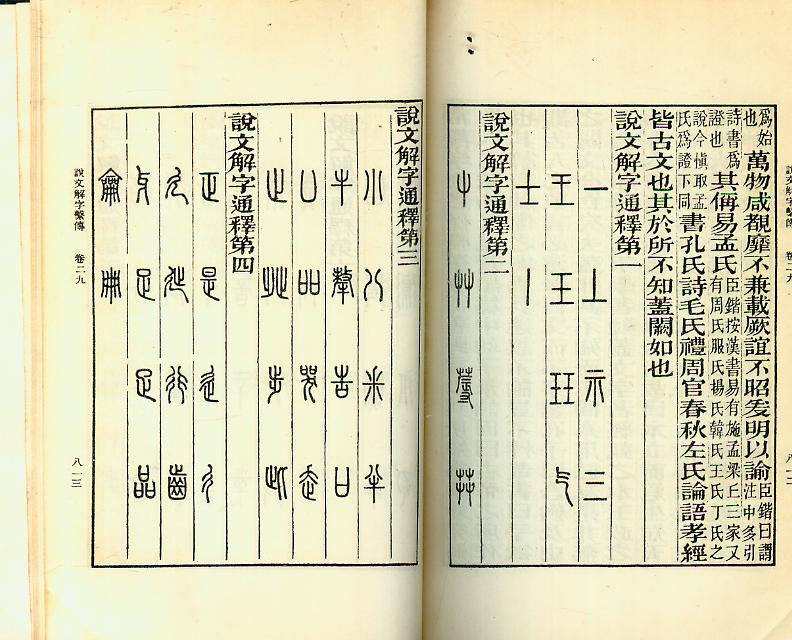 說文解字繫傳 卷二九 八一二
爲始也萬物咸覩靡不兼載厥誼不昭爰明以諭臣鍇曰謂注中多引
詩書爲證也其偁易孟氏臣鍇按漢書易有施孟梁丘三家又有周氏服氏楊氏韓氏王氏丁氏之
說今慎取孟氏爲證下同書孔氏詩毛氏禮周官春秋左氏論語孝經
皆古文也其於所不知蓋闕如也
說文解字通釋第一
一 丄 示 三
王 玉 玨 气
士 丨
說文解字通釋第二
屮 艸 蓐 茻
說文解字通釋第三
小 八 釆 半
牛 犛 告 口
凵 吅 哭 走
止 癶 步 此
說文解字通釋第四
正 是 辵 彳
廴 㢟 行 齒
牙 足 疋 品
龠 冊
說文解字繫傳 卷二九 八一三